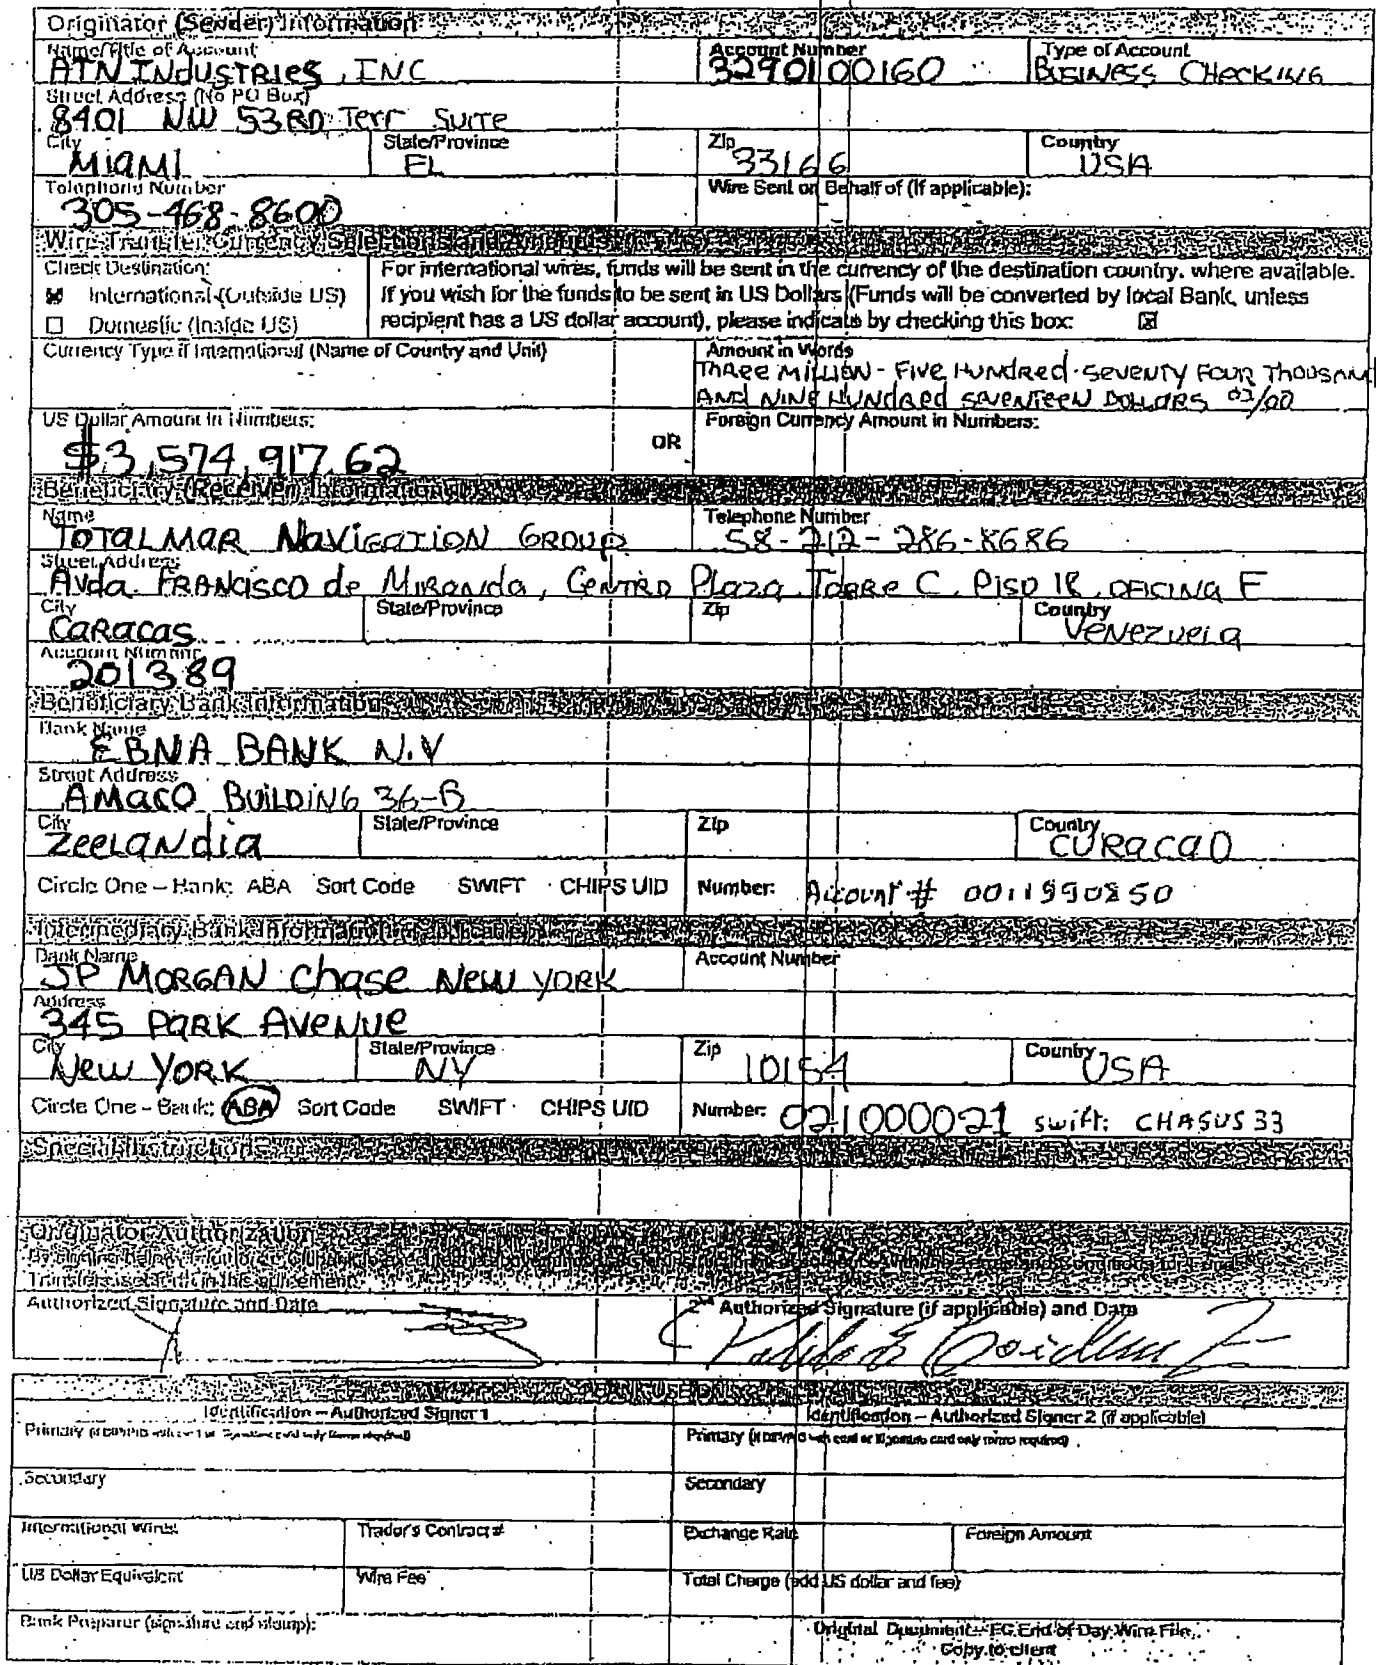 Originator (Sender) Information
Name/Title of Account Account Number Type of Account
ATN INDUSTRIES, INC 3290100160 BUSINESS CHECKING
Street Address (No PO Box)
8401 NW 53RD Terr Suite
City State/Province Zip Country
MIAMI FL 33166 USA
Telephone Number Wire Sent on Behalf of (If applicable):
305-468-8600
Wire Transfer Currency Selections and Amounts
Check Destination: For international wires, funds will be sent in the currency of the destination country, where available.
☒ International (Outside US) If you wish for the funds to be sent in US Dollars (Funds will be converted by local Bank, unless
☐ Domestic (Inside US) recipient has a US dollar account), please indicate by checking this box: ☒
Currency Type if International (Name of Country and Unit) Amount in Words
THREE MILLION - FIVE HUNDRED - SEVENTY FOUR THOUSAND
AND NINE HUNDRED SEVENTEEN DOLLARS
US Dollar Amount in Numbers: OR Foreign Currency Amount in Numbers:
$3,574,917.62
Beneficiary (Receiver) Information
Name Telephone Number
TOTALMAR NAVIGATION GROUP 58-212-286-8686
Street Address
Avda. FRANCISCO de MIRANDA, CENTRO Plaza TORRE C. PISO 18 OFICINA F
City State/Province Zip Country
CARACAS Venezuela
Account Number
201389
Beneficiary Bank Information
Bank Name
EBNA BANK N.V
Street Address
AMACO BUILDING 36-B
City State/Province Zip Country
Zeelandia CURACAO
Circle One – Bank: ABA Sort Code SWIFT CHIPS UID Number: Account # 0011990850
Intermediary Bank Information (if applicable)
Bank Name Account Number
JP MORGAN Chase New YORK
Address
345 PARK AVENUE
City State/Province Zip Country
New YORK NY 10154 USA
Circle One – Bank: ABA Sort Code SWIFT CHIPS UID Number: 021000021 swift: CHASUS33
Special Instructions
Originator Authorization
Transfers set forth in this agreement.
Authorized Signature and Date 2nd Authorized Signature (if applicable) and Date
BANK USE ONLY
Identification – Authorized Signer 1 Identification – Authorized Signer 2 (if applicable)
Primary Primary
Secondary Secondary
International Wires: Trader's Contract # Exchange Rate Foreign Amount
US Dollar Equivalent Wire Fee Total Charge (add US dollar and fee)
Bank Preparer (signature and stamp): Original Document – FC End of Day Wire File,
Copy to client